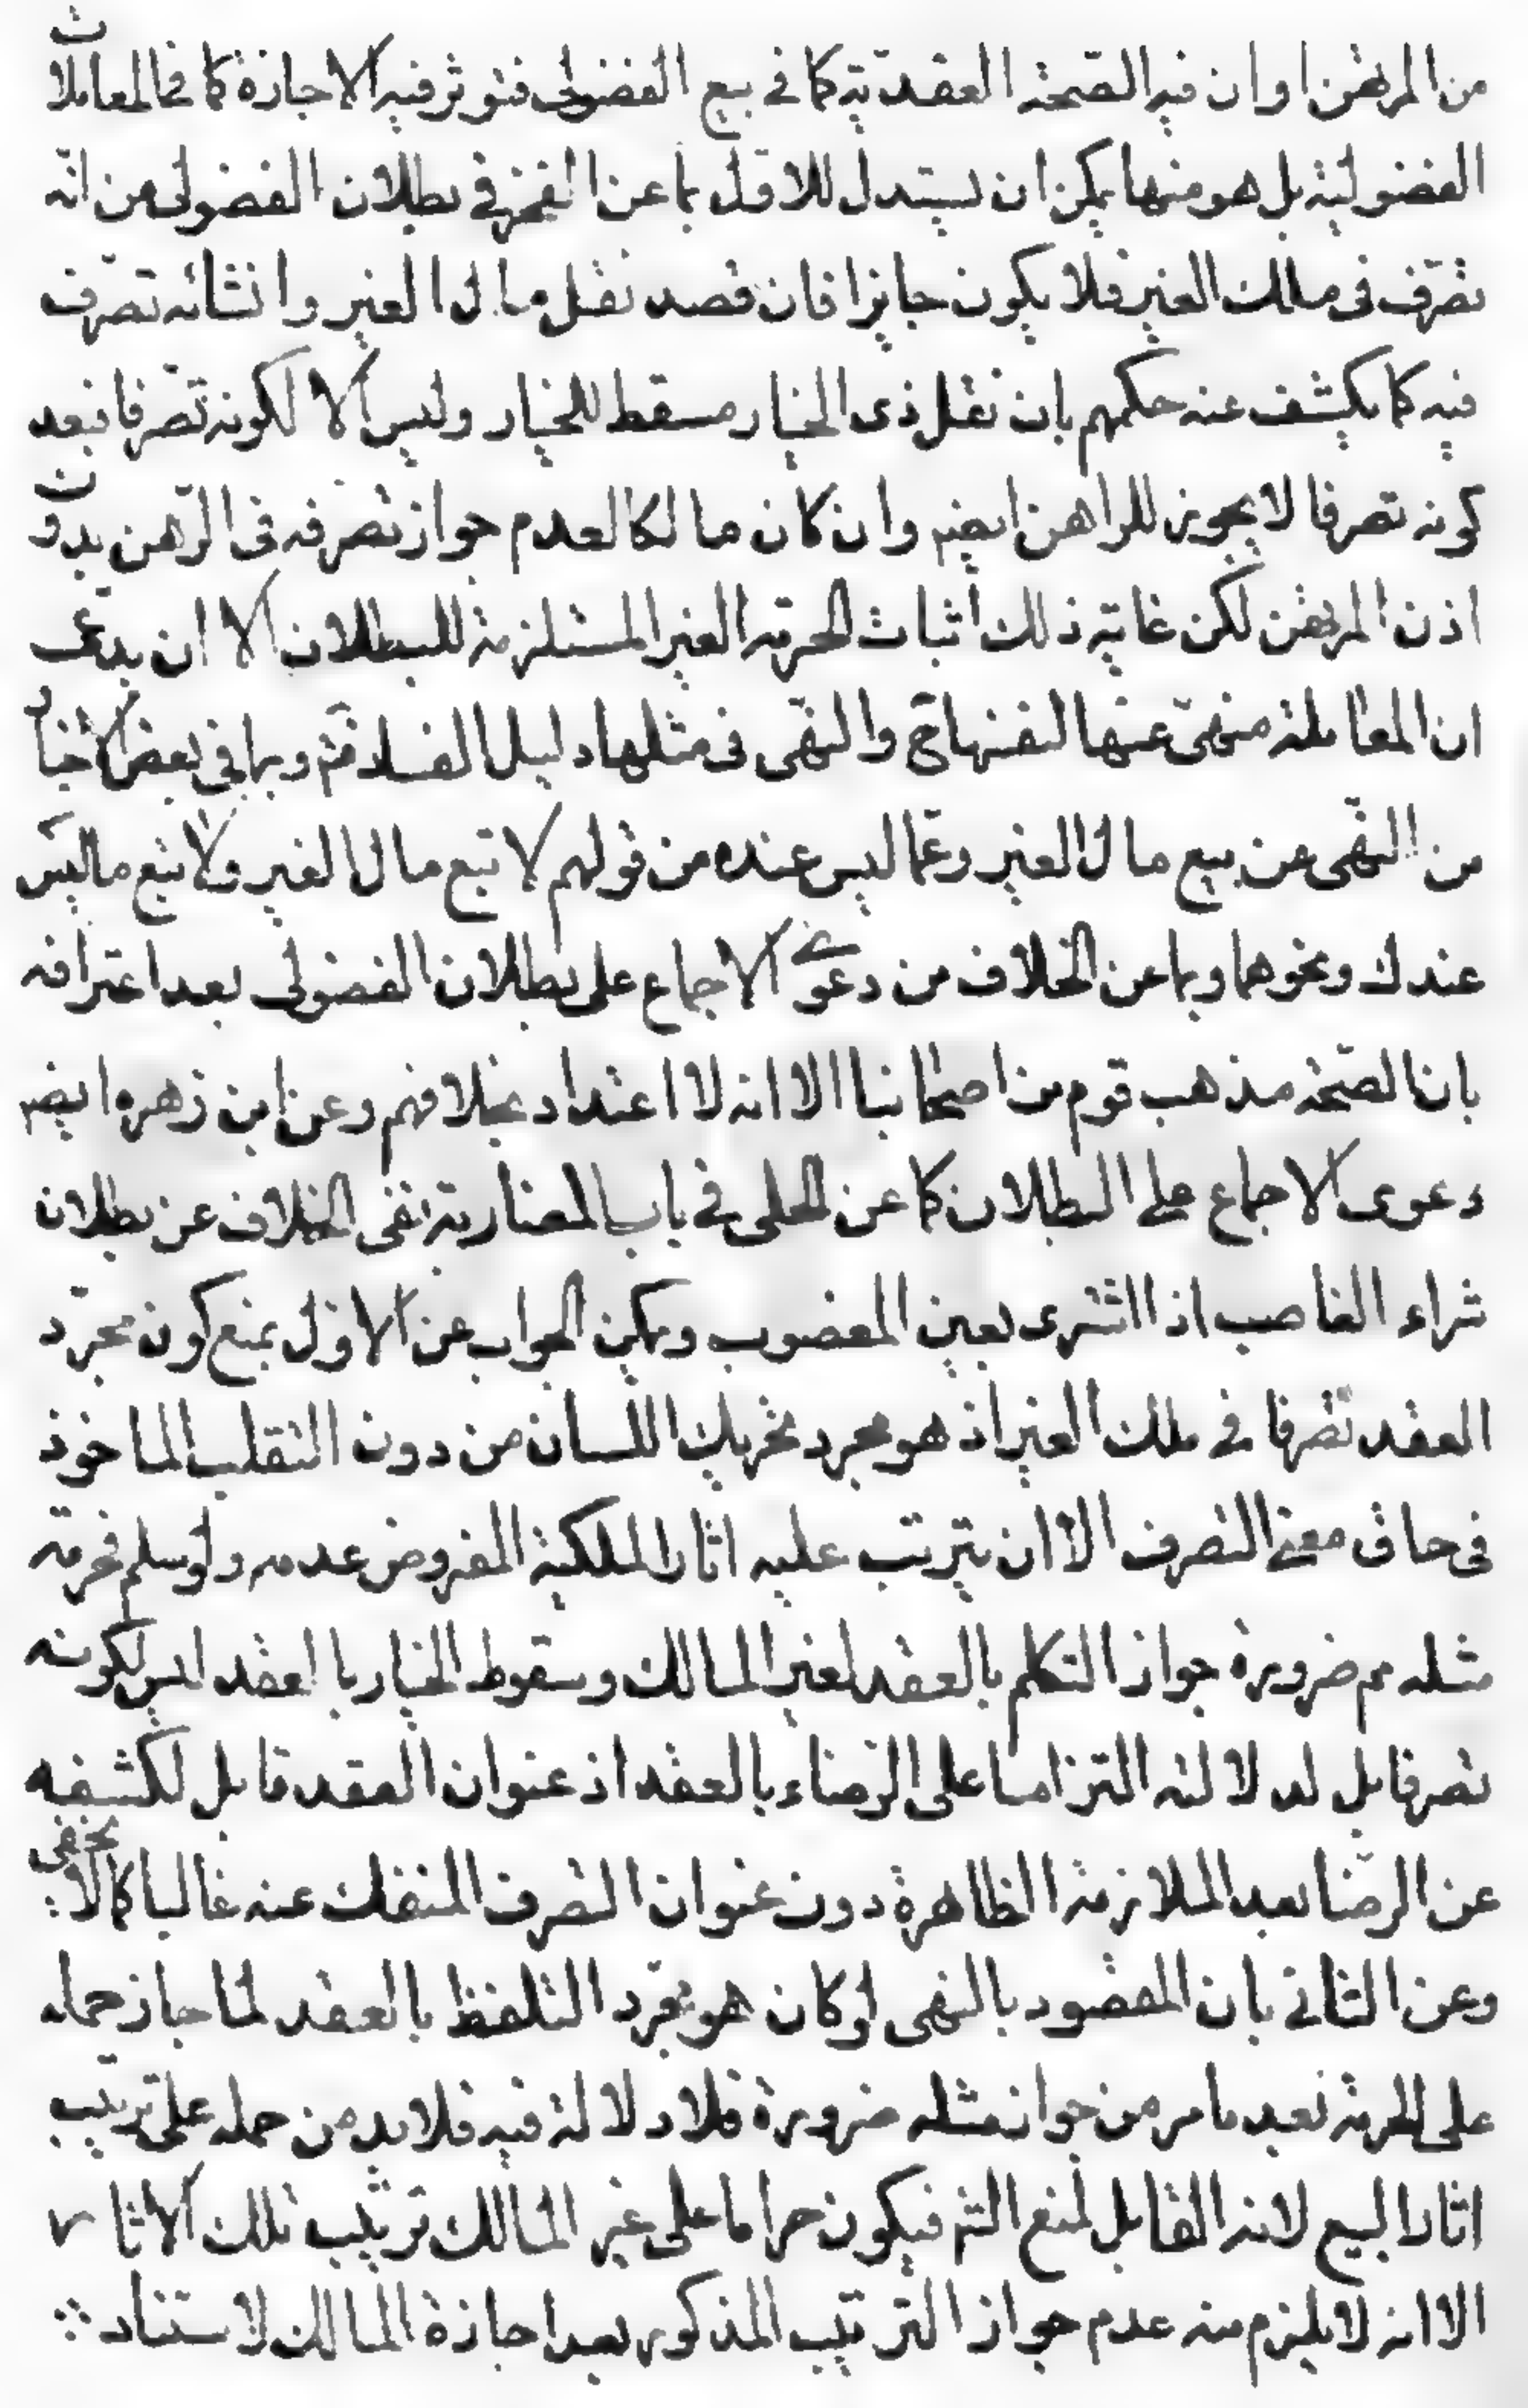 من المرتهن او ان فيه الصّحة العقديّة كما فى بيع الفضولى فتؤثر فيه الاجازة كما فى المعاملات
الفضوليّة بل هو منها يمكن ان يستدل للاوّل بما عن الفخر فى بطلان الفضولى من انّه
تصرّف فى ملك الغير فلا يكون جايزا فان قصد نقل مال الغير وانشائه تصرّف
فيه كما يكشف عنه حكمهم بان نقل ذى الخيار مسقط للخيار وليس الّا لكونه تصّرفا فبعد
كونه تصرفا لا يجوز للراهن ايضم وان كان مالكا لعدم جواز تصرفه فى الرّهن بدون
اذن المرتهن لكن غاية ذلك اثبات الحرمة الغير المستلزمة للبطلان الا ان يدّعى
ان المعاملة منهىّ عنها لنفسها ح والنهى فى مثلها دليل الفساد فتم وبما فى بعض الاخبار
من النّهى عن بيع مال الغير وعمّا ليس عنده من قولهم لا تبع مال الغير ولا تبع ما ليس
عندك ونحوهما وبما عن الخلاف من دعوى الاجماع على بطلان الفضولى بعد اعترافه
بان الصّحة مذهب قوم من اصحابنا الا انه لا اعتداد بخلافهم وعن ابن زهره ايضم
دعوى الاجماع على البطلان كما عن الحلى فى باب المضاربة نفى الخلاف عن بطلان
شراء الغاصب اذا اشترى بعين المغصوب ويمكن الجواب عن الاوّل بمنع كون مجرّد
العقد تصّرفا فى ملك الغير اذ هو مجرد تحريك اللسان من دون التقلب الماخوذ
فى حاق معنى التصرف الا ان يترتب عليه اثار الملكية المفروض عدمه ولو سلم فحرمة
مثله مم ضرورة جواز التكلم بالعقد لغير المالك وسقوط الخيار بالعقد ليس لكونه
تصرفا بل لدلالته التزاما على الرّضاء بالعقد اذ عنوان العقد قابل لكشفه
عن الرضا بعد الملازمة الظاهرة دون عنوان التصرف المنفك عنه غالبا كما لا يخفى
وعن الثانى بان المقصود بالنهى لو كان هو مجرّد التلفظ بالعقد لما جاز حمله
على الحرمة بعد ما مر من جواز مثله ضرورة فلا دلالة فيه فلا بد من حمله على ترتيب
اثار البيع لانه القابل لمنع الشم فيكون حراما على غير المالك ترتيب تلك الاثار
الا انه لا يلزم منه عدم جواز الترتيب المذكور بعد اجازة المالك لاستناد